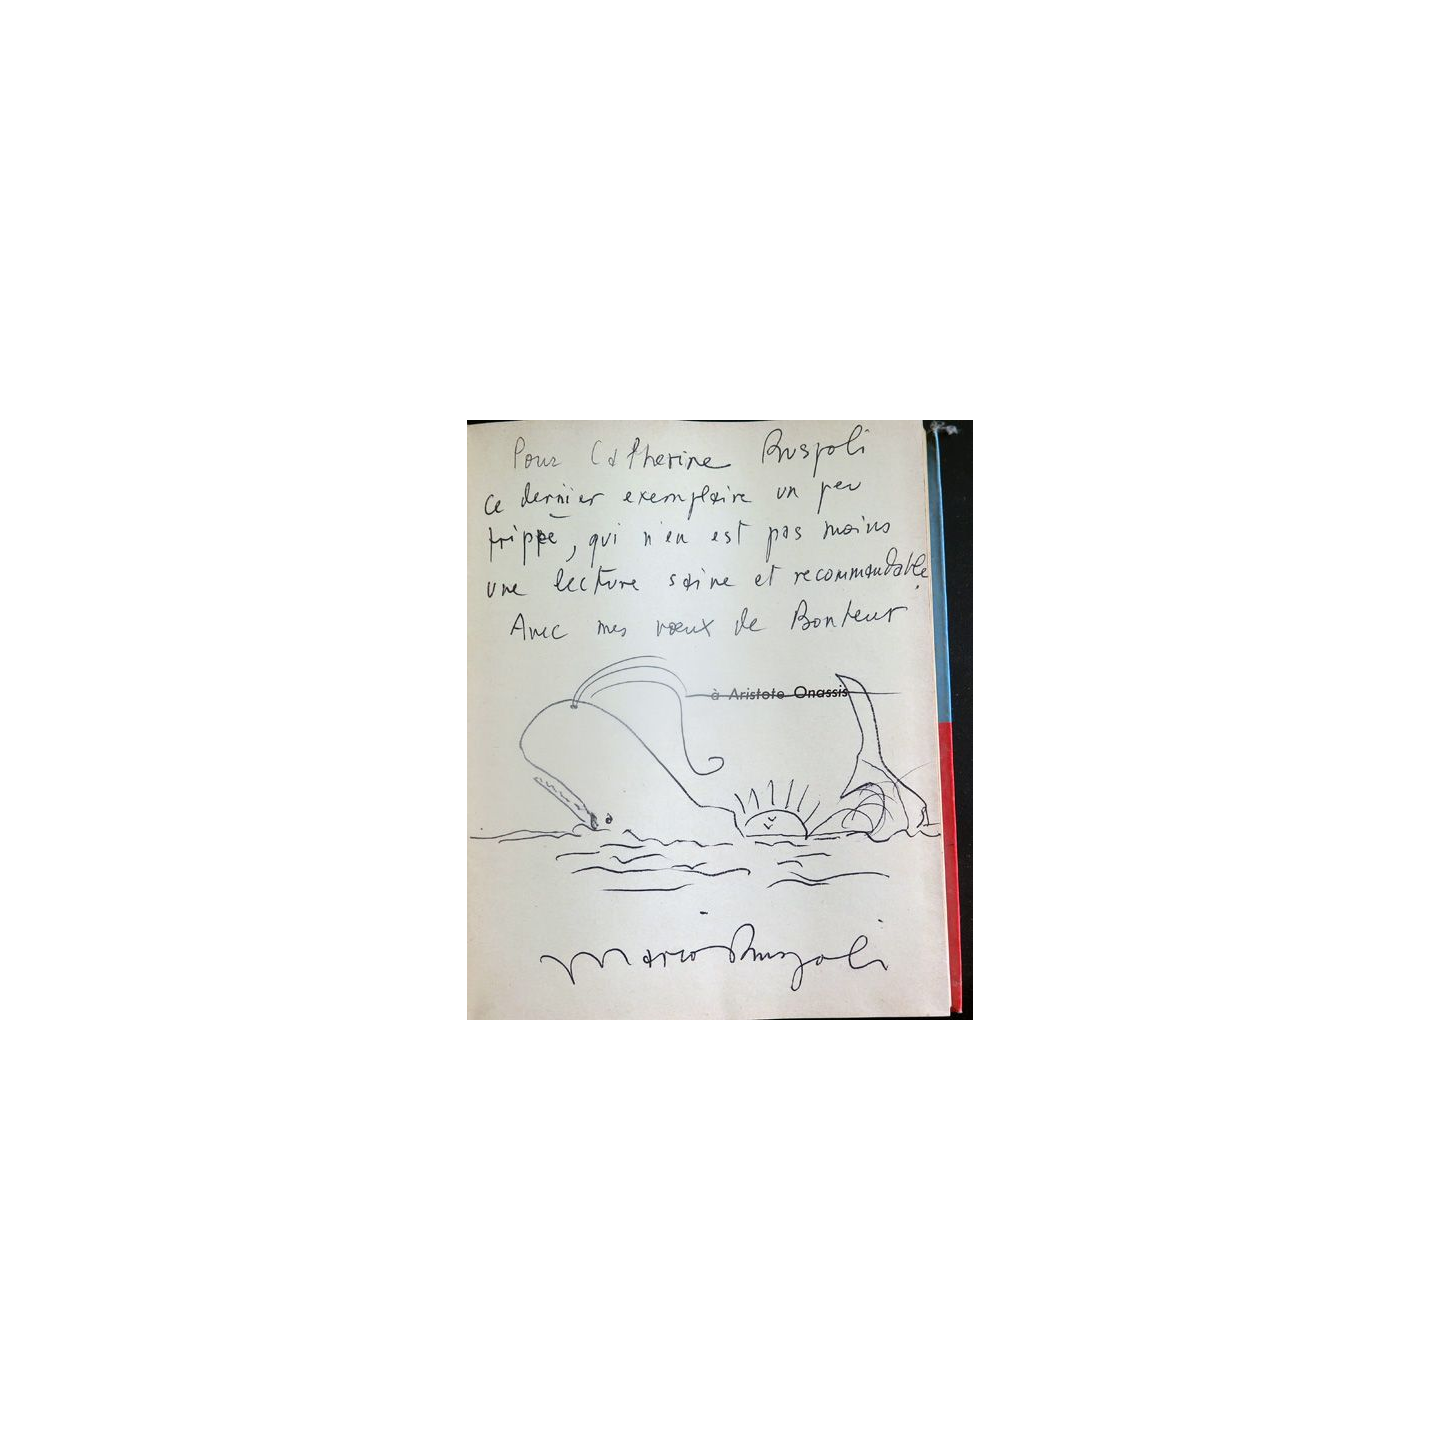 Pour Catherine Ruspoli
ce dernier exemplaire un peu
frippé, qui n'en est pas moins
une lecture saine et recommandable.
Avec mes vœux de Bonheur
à Aristote Onassis
Mario Ruspoli